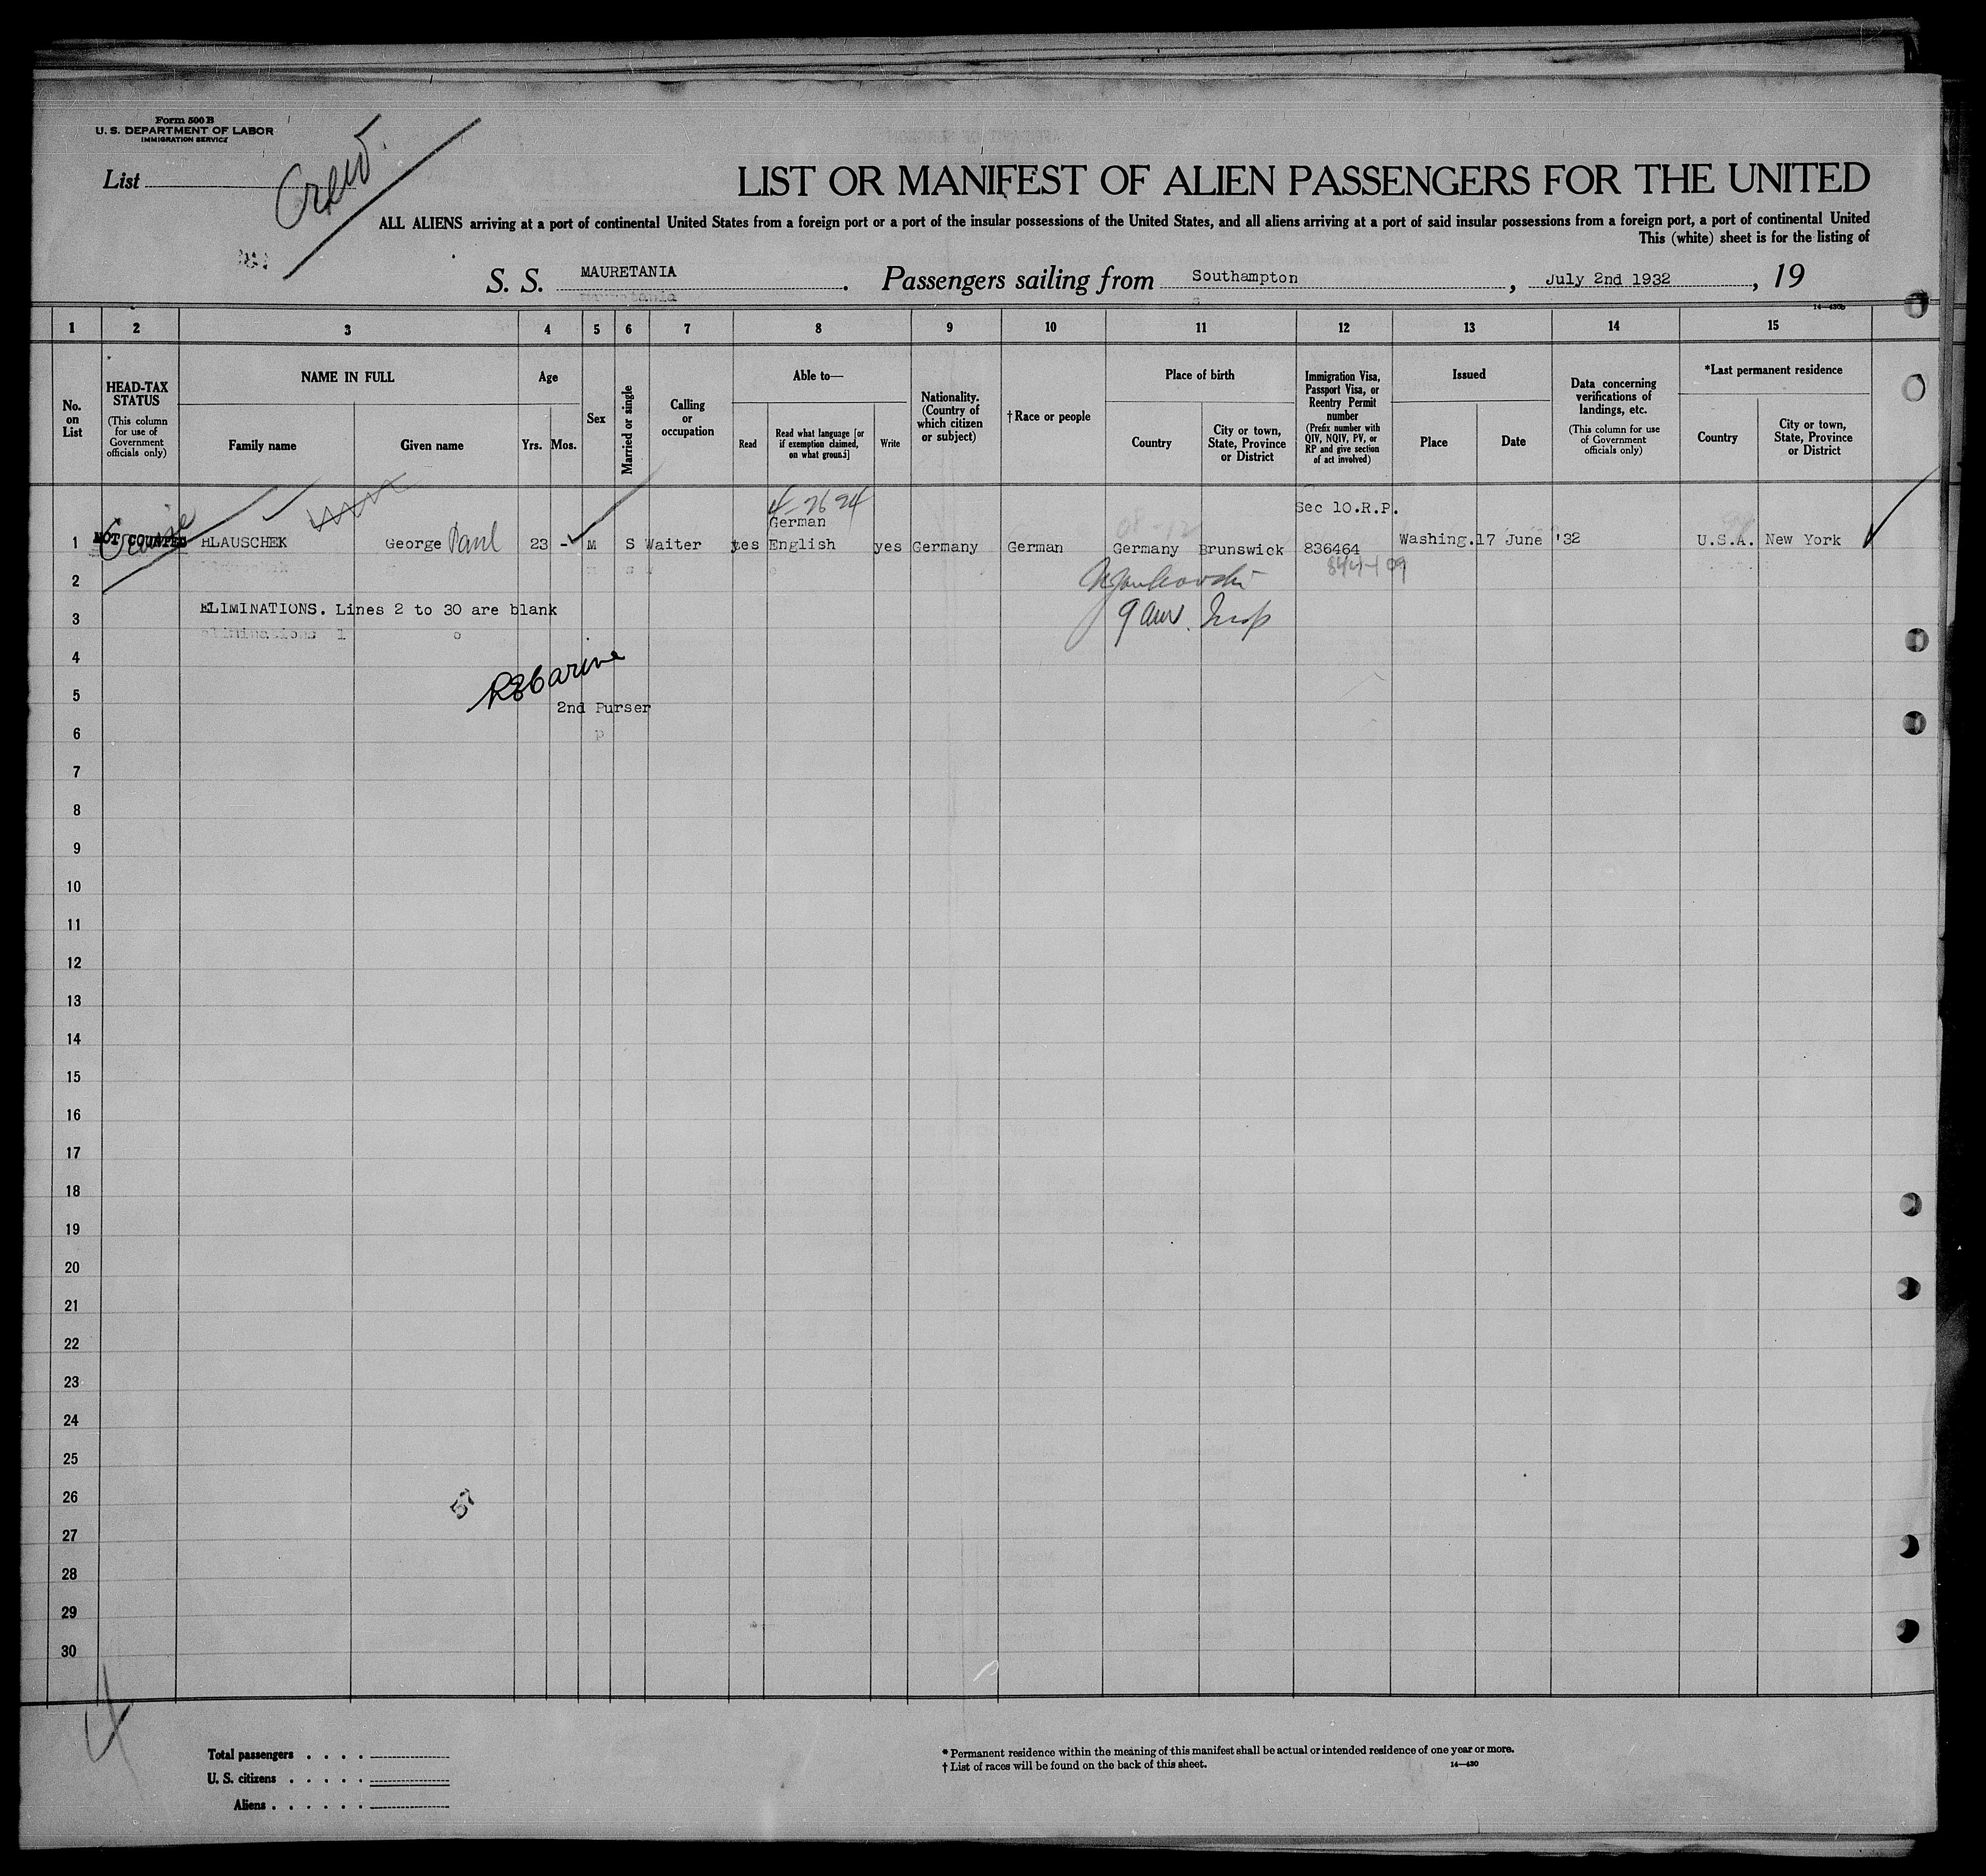 Form 500 B
U. S. DEPARTMENT OF LABOR
IMMIGRATION SERVICE
List
Crew.
LIST OR MANIFEST OF ALIEN PASSENGERS FOR THE UNITED
ALL ALIENS arriving at a port of continental United States from a foreign port or a port of the insular possessions of the United States, and all aliens arriving at a port of said insular possessions from a foreign port, a port of continental United
This (white) sheet is for the listing of
S. S. MAURETANIA . Passengers sailing from Southampton , July 2nd 1932 , 19
14—430b
1 2 3 4 5 6 7 8 9 10 11 12 13 14 15
No. on List
HEAD-TAX STATUS
(This column for use of Government officials only)
NAME IN FULL
Family name Given name
Age
Yrs. Mos.
Sex
Married or single
Calling or occupation
Able to—
Read
Read what language [or if exemption claimed, on what ground]
Write
Nationality. (Country of which citizen or subject)
† Race or people
Place of birth
Country
City or town, State, Province or District
Immigration Visa, Passport Visa, or Reentry Permit number
(Prefix number with QIV, NQIV, PV, or RP and give section of act involved)
Issued
Place Date
Data concerning verifications of landings, etc.
(This column for use of Government officials only)
*Last permanent residence
Country
City or town, State, Province or District
Sec 10.R.P.
German
1 NOT COUNTED HLAUSCHEK George Paul 23 - M S Waiter yes English yes Germany German Germany Brunswick 836464 Washing. 17 June '32 U.S.A. New York
2
3 ELIMINATIONS. Lines 2 to 30 are blank
4
5
2nd Purser
6
7
8
9
10
11
12
13
14
15
16
17
18
19
20
21
22
23
24
25
26
57
27
28
29
30
Total passengers . . . .
U. S. citizens . . . . .
Aliens . . . . . .
* Permanent residence within the meaning of this manifest shall be actual or intended residence of one year or more.
† List of races will be found on the back of this sheet.
14—430